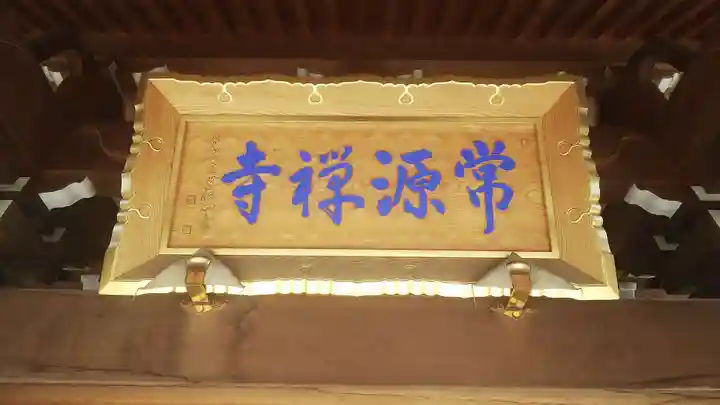 常源禅寺